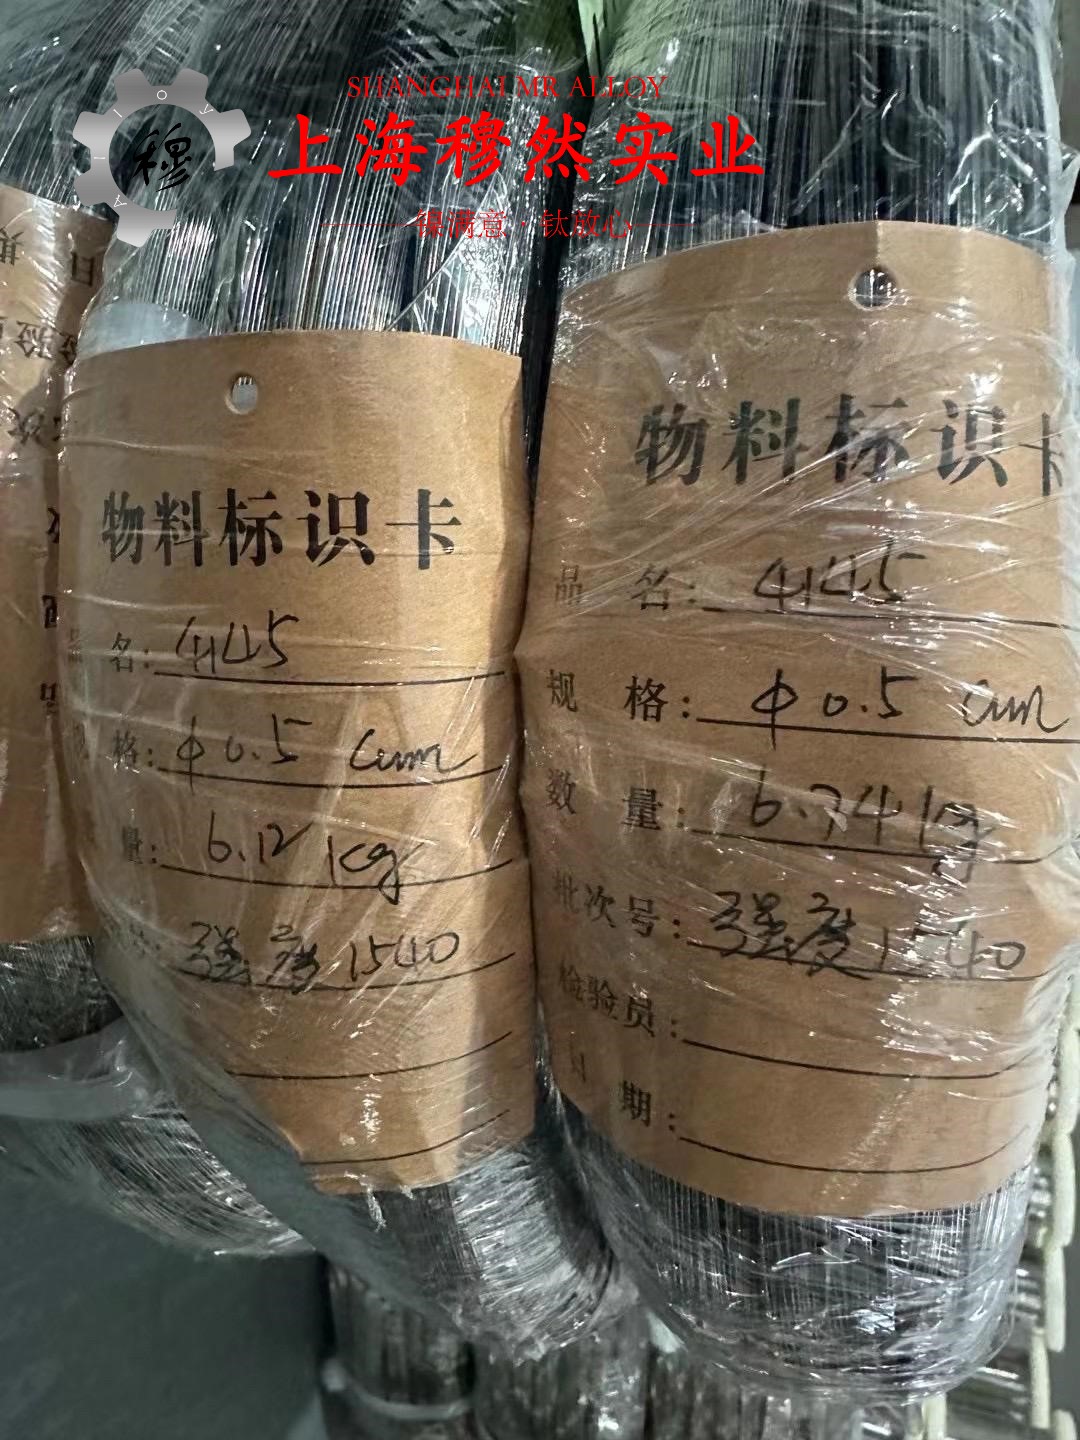 SHANGHAI MR ALLOY
上海穆然实业
镍满意·钛放心
穆
物料标识卡
名: 4J45
格: φ0.5 mm
量: 6.12 kg
强度1540
物料标识卡
品名: 4J45
规格: φ0.5 mm
数量: 6.74 kg
批次号: 强度1540
检验员:
日期: